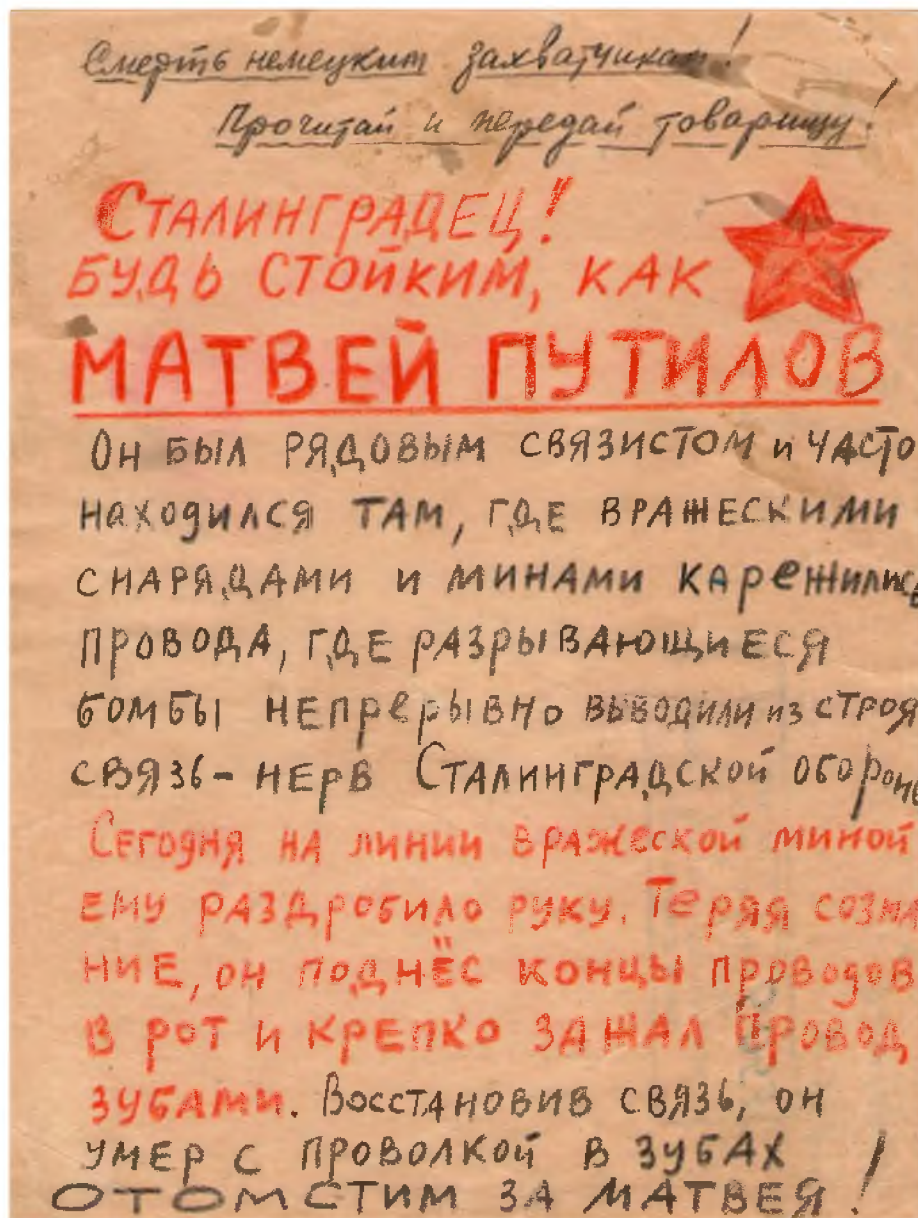 Смерть немецким захватчикам!
Прочитай и передай товарищу!
СТАЛИНГРАДЕЦ!
БУДЬ СТОЙКИМ, КАК
МАТВЕЙ ПУТИЛОВ
ОН БЫЛ РЯДОВЫМ СВЯЗИСТОМ и ЧАСТО
НАХОДИЛСЯ ТАМ, ГДЕ ВРАЖЕСКИМИ
СНАРЯДАМИ И МИНАМИ КАРЕЖИЛИСЬ
ПРОВОДА, ГДЕ РАЗРЫВАЮЩИЕСЯ
БОМБЫ НЕПРЕРЫВНО ВЫВОДИЛИ ИЗ СТРОЯ
СВЯЗЬ - НЕРВ СТАЛИНГРАДСКОЙ ОБОРОНЫ
СЕГОДНЯ НА ЛИНИИ ВРАЖЕСКОЙ МИНОЙ
ЕМУ РАЗДРОБИЛО РУКУ. ТЕРЯЯ СОЗНА
НИЕ, ОН ПОДНЁС КОНЦЫ ПРОВОДОВ
В РОТ И КРЕПКО ЗАЖАЛ ПРОВОД
ЗУБАМИ. ВОССТАНОВИВ СВЯЗЬ, ОН
УМЕР С ПРОВОЛКОЙ В ЗУБАХ
ОТОМСТИМ ЗА МАТВЕЯ!